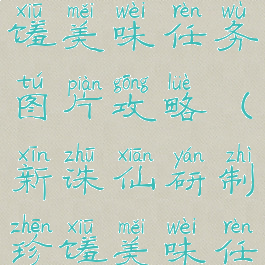 xiū měi wèi rèn wù
馐美味任务
tú piàn gōng lüè
图片攻略（
xīn zhū xiān yán zhì
新诛仙研制
zhēn xiū měi wèi rèn
珍馐美味任